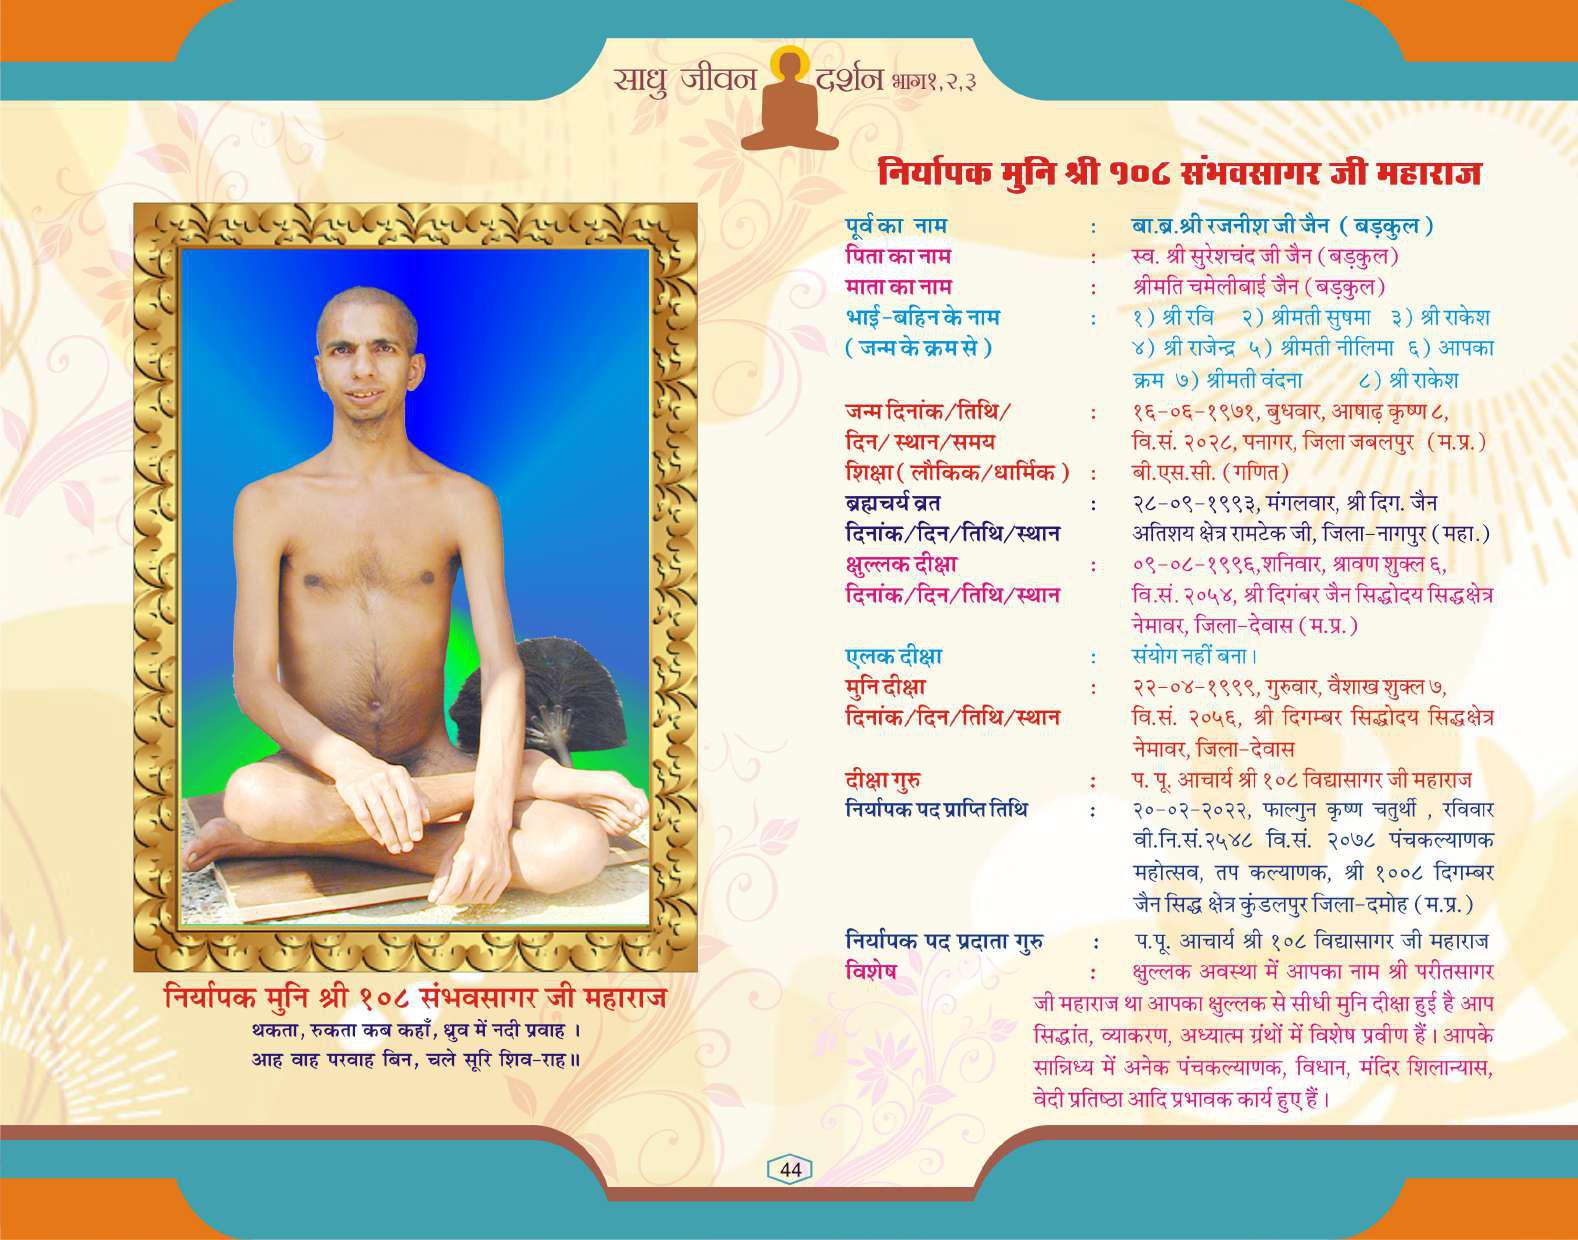 साधु जीवन दर्शन भाग१,२,३
निर्यापक मुनि श्री १०८ संभवसागर जी महाराज
पूर्व का नाम : बा.ब्र.श्री रजनीश जी जैन ( बड़कुल )
पिता का नाम : स्व. श्री सुरेशचंद जी जैन ( बड़कुल )
माता का नाम : श्रीमति चमेलीबाई जैन ( बड़कुल )
भाई-बहिन के नाम : १) श्री रवि २) श्रीमती सुषमा ३) श्री राकेश
( जन्म के क्रम से ) ४) श्री राजेन्द्र ५) श्रीमती नीलिमा ६) आपका
क्रम ७) श्रीमती वंदना ८) श्री राकेश
जन्म दिनांक/तिथि/ : १६-०६-१९७१, बुधवार, आषाढ़ कृष्ण ८,
दिन/ स्थान/समय वि.सं. २०२८, पनागर, जिला जबलपुर (म.प्र.)
शिक्षा ( लौकिक/धार्मिक ) : बी.एस.सी. (गणित)
ब्रह्मचर्य व्रत : २८-०९-१९९३, मंगलवार, श्री दिग. जैन
दिनांक/दिन/तिथि/स्थान अतिशय क्षेत्र रामटेक जी, जिला-नागपुर (महा.)
क्षुल्लक दीक्षा : ०९-०८-१९९६,शनिवार, श्रावण शुक्ल ६,
दिनांक/दिन/तिथि/स्थान वि.सं. २०५४, श्री दिगंबर जैन सिद्धोदय सिद्धक्षेत्र
नेमावर, जिला-देवास (म.प्र.)
एलक दीक्षा : संयोग नहीं बना।
मुनि दीक्षा : २२-०४-१९९९, गुरुवार, वैशाख शुक्ल ७,
दिनांक/दिन/तिथि/स्थान वि.सं. २०५६, श्री दिगम्बर सिद्धोदय सिद्धक्षेत्र
नेमावर, जिला-देवास
दीक्षा गुरु : प. पू. आचार्य श्री १०८ विद्यासागर जी महाराज
निर्यापक पद प्राप्ति तिथि : २०-०२-२०२२, फाल्गुन कृष्ण चतुर्थी , रविवार
वी.नि.सं.२५४८ वि.सं. २०७८ पंचकल्याणक
महोत्सव, तप कल्याणक, श्री १००८ दिगम्बर
जैन सिद्ध क्षेत्र कुंडलपुर जिला-दमोह (म.प्र.)
निर्यापक पद प्रदाता गुरु : प.पू. आचार्य श्री १०८ विद्यासागर जी महाराज
विशेष : क्षुल्लक अवस्था में आपका नाम श्री परीतसागर
जी महाराज था आपका क्षुल्लक से सीधी मुनि दीक्षा हुई है आप
सिद्धांत, व्याकरण, अध्यात्म ग्रंथों में विशेष प्रवीण हैं। आपके
सान्निध्य में अनेक पंचकल्याणक, विधान, मंदिर शिलान्यास,
वेदी प्रतिष्ठा आदि प्रभावक कार्य हुए हैं।
निर्यापक मुनि श्री १०८ संभवसागर जी महाराज
थकता, रुकता कब कहाँ, ध्रुव में नदी प्रवाह ।
आह वाह परवाह बिन, चले सूरि शिव-राह॥
44